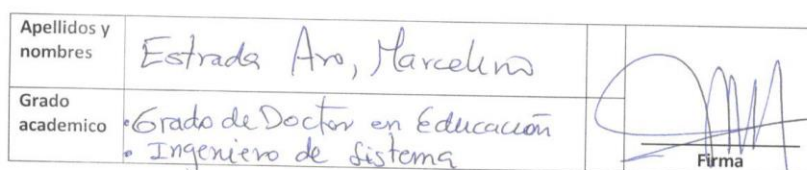 Apellidos y nombres
Estrada Aro, Marcelino
Grado academico
• Grado de Doctor en Educación
• Ingeniero de Sistema
Firma